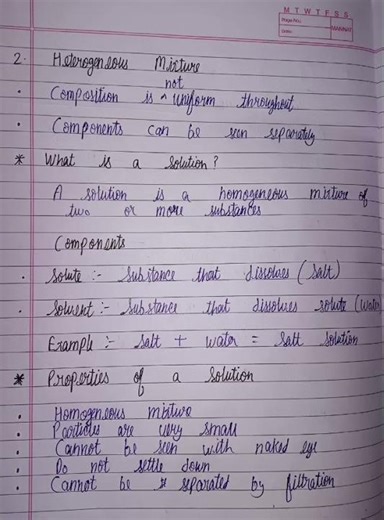 M T W T F S S
Page No.:
Date:
2. Heterogeneous Mixture
not
• Composition is ^ uniform throughout
• Components can be seen separately
* What is a solution?
A solution is a homogeneous mixture of
two or more substances
Components
• Solute :- Substance that dissolves (Salt)
• Solvent :- Substance that dissolves solute (Water
Example :- Salt + Water = Salt Solution
* Properties of a Solution
• Homogeneous mixture
• Particles are very small
• Cannot be seen with naked eye
• Do not settle down
• Cannot be separated by filtration